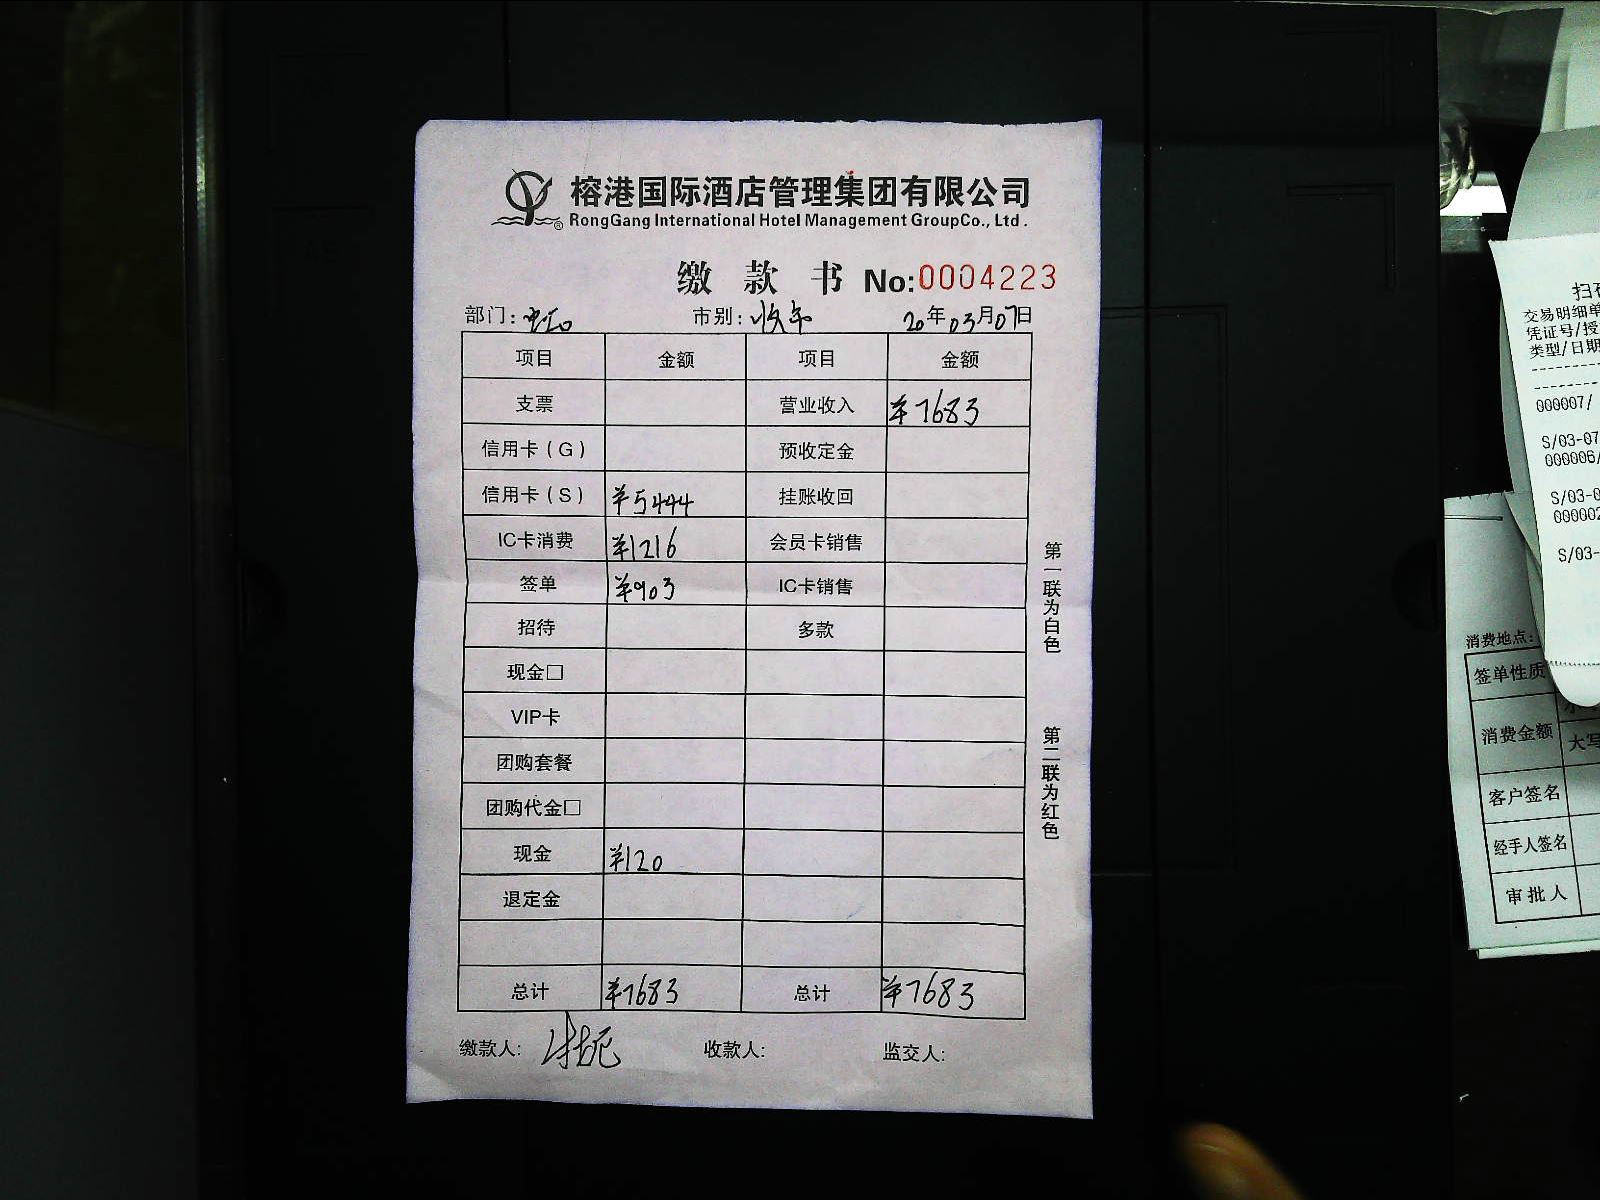 榕港国际酒店管理集团有限公司
RongGang International Hotel Management GroupCo., Ltd.
缴 款 书 No:0004223
部门: 市别: 20年03月07日
项目 金额 项目 金额
支票 营业收入 ¥7683
信用卡(G) 预收定金
信用卡(S) ¥5444 挂账收回
IC卡消费 ¥1216 会员卡销售
签单 ¥903 IC卡销售
招待 多款
现金□
VIP卡
团购套餐
团购代金□
现金 ¥120
退定金
总计 ¥7683 总计 ¥7683
缴款人: 收款人: 监交人:
第一联为白色
第二联为红色
交易明细单
凭证号/授
类型/日期
000007/
S/03-07
000006/
S/03-0
000002
S/03-
消费地点:
签单性质
消费金额
大写
客户签名
经手人签名
审批人